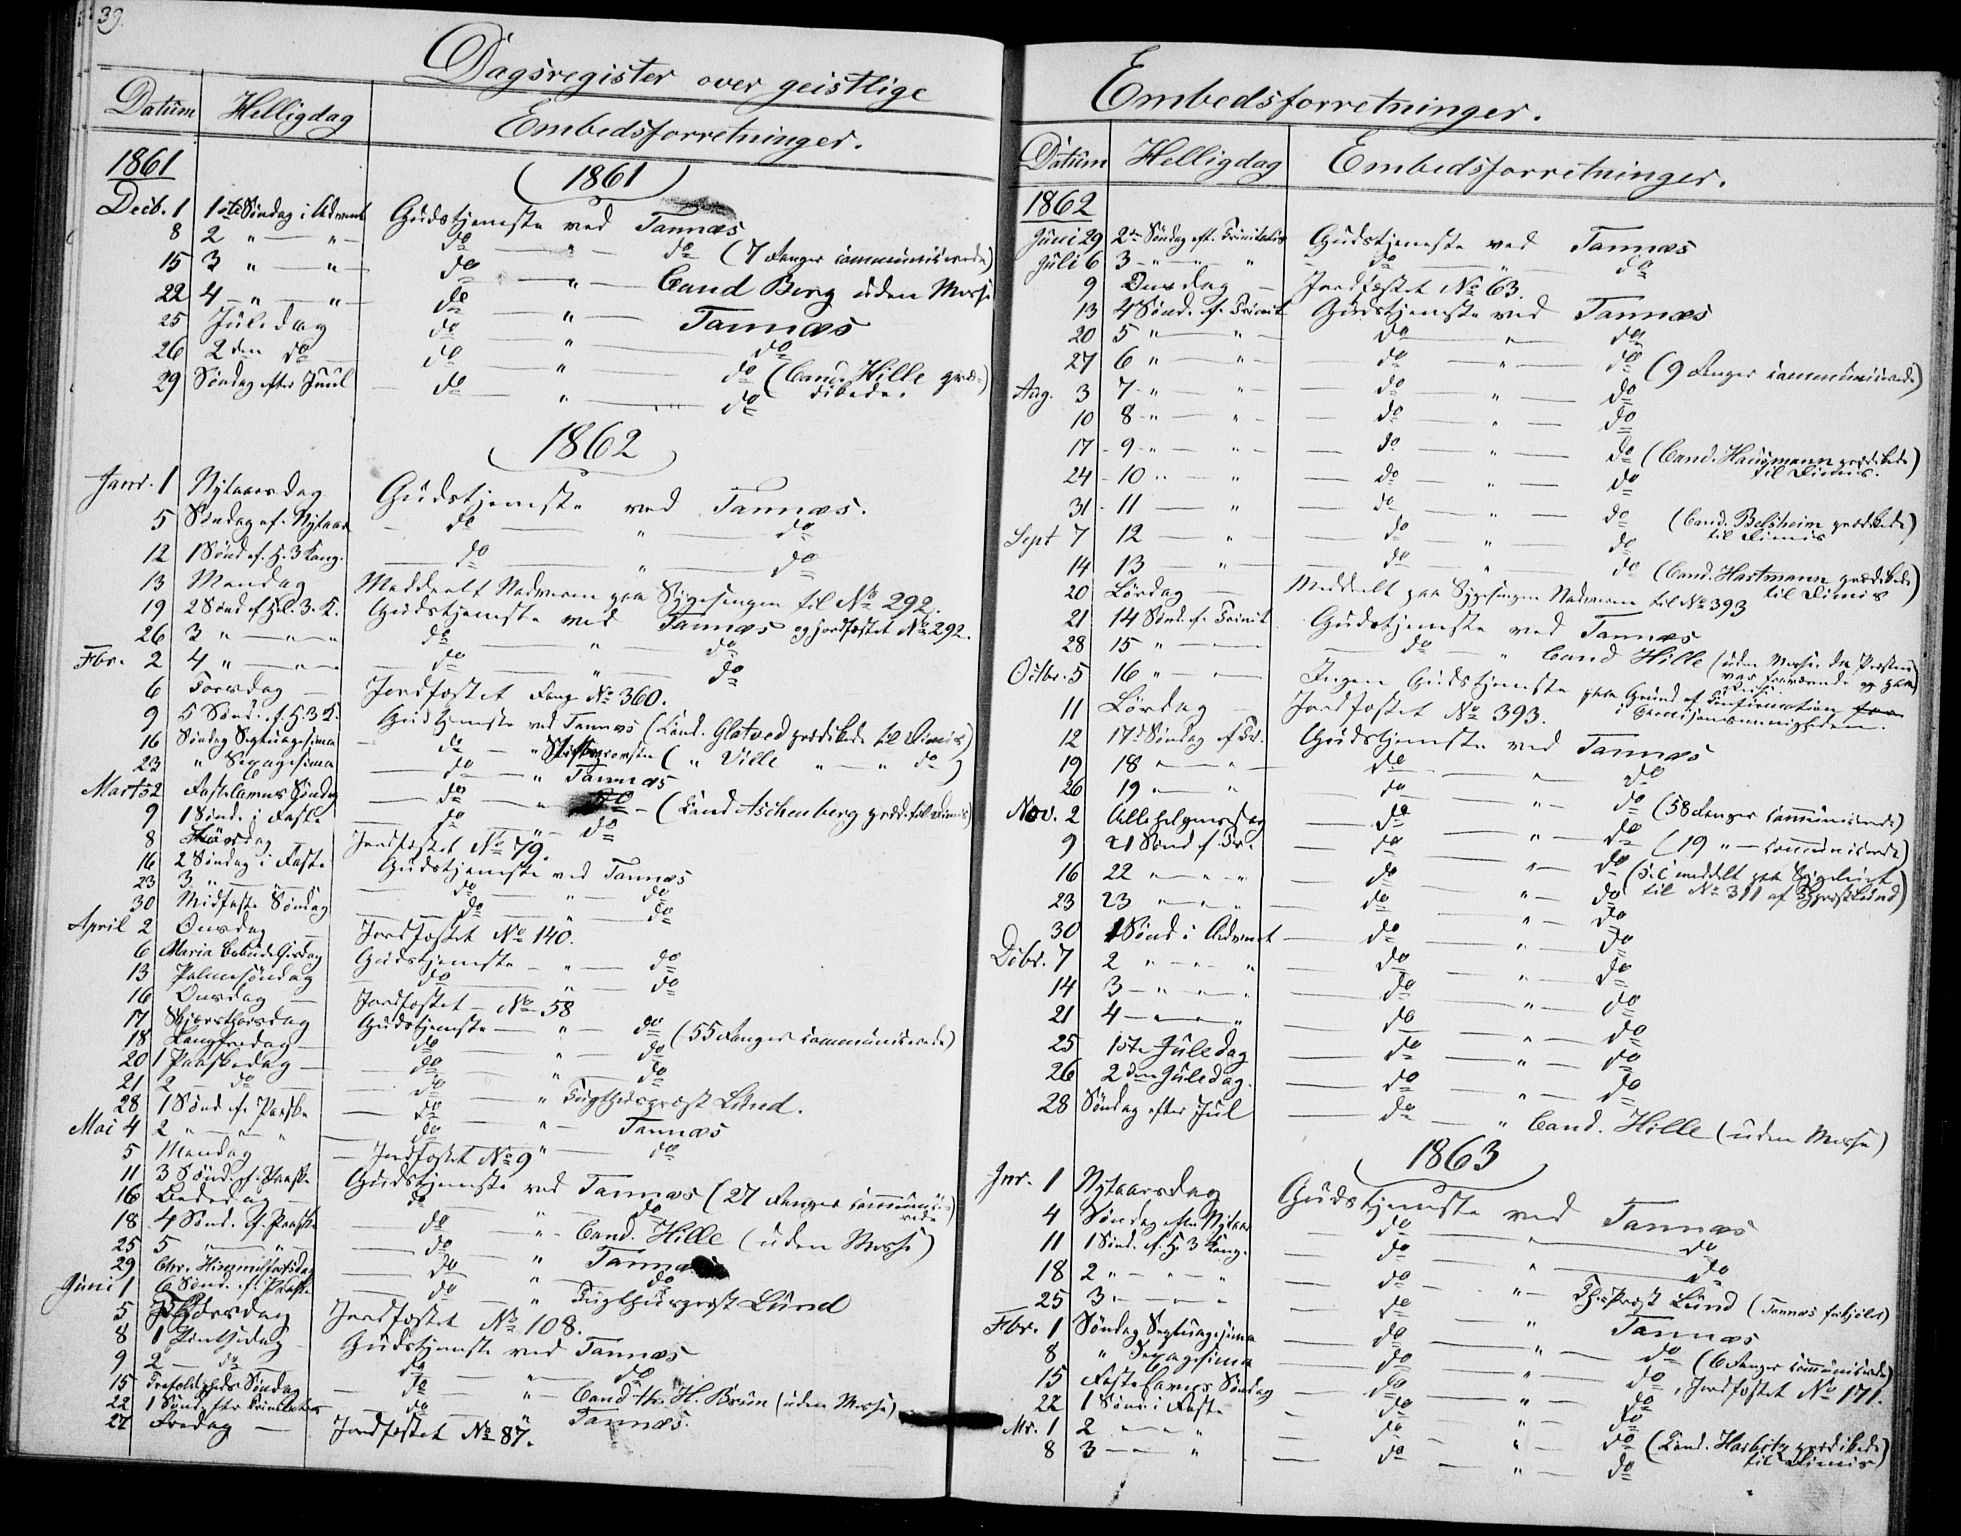 39.
Dagsregister over geistlige
Datum Helligdag Embedsforretninger.
1861 1861
Decb. 1 1ste Søndag i Advent Gudstjeneste ved Tannæs
8 2 " — " — do " — do (7 Fanger communicerede)
15 3 " — " — do — " — Cand Berg uden Messe
22 4 — " — " — do — " — Tannæs
25 Juledag do — " — do
26 2den do do — " — do (Cand. Hille præ-
29 Søndag efter Juul — do — " — do dikede.
1862
Janr. 1 Nytaarsdag Gudstjeneste ved Tannæs.
5 Søndag ef. Nytaar — do — " — do
12 1 Sønd ef. H. 3 Kong. — do — " — do
13 Mandag Meddeelt Nadveren paa Sygesengen til No 292.
19 2 Sønd ef Hel. 3. K. Gudstjeneste ved Tannæs og jordfæstet No 292.
26 3 " — " — " do — " — do
Fbr. 2 4 " — " — do — " — do
6 Torsdag — Jordfæstet Fange No 360.
9 5 Sønd. ef. H. 3 K. Gudstjeneste ved Tannæs (Cand. Glatved prædikede til Dimis)
16 Søndag Septuagesima — do — " Stiftsprovsten ( " Ville " — " do )
23 " Sexagesima — do — " Tannæs
Marts 2 Fastelavns Søndag — do — " do — (Cand Aschenberg præd. til Dimis)
9 1 Sønd. i Faste — do — " — do
8 Lørdag Jordfæstet No 79.
16 2 Søndag i Faste Gudstjeneste ved Tannæs
23 3 " — — do — " — do
30 Midfaste Søndag — do — " — do
April 2 Onsdag — Jordfæstet No 140.
6 Maria Bebudelsesdag Gudstjeneste — " — do
13 Palmesøndag — do — " — do
16 Onsdag — Jordfæstet — No 58
17 Skjærthorsdag Gudstjeneste — " — do (55 Fanger communicerede)
18 Langfredag — do — " — do
20 1 Paaskedag — do — " — do
21 2 — do — do — " Tugthuspræst Lund.
28 1 Sønd ef. Paaske — do — " — Tannæs
Mai 4 2 " — " — " — do — " — do
5 Mandag — Jordfæstet No 9
11 3 Sønd. ef. Paaske Gudstjeneste ved Tannæs (27 Fanger communice-
16 Bededag — do — " — do rede)
18 4 Sønd. ef. Paaske — do — " — Cand. Hille (uden Messe)
25 5 " — " — do — " Tannæs
29 Chr. Himmelfartsdag — do — " — do
Juni 1 6 Sønd. ef. Paaske — do — " Tugthuspræst Lund
5 Torsdag Jordfæstet No 108.
8 1 Pintsedag — Gudstjeneste ved Tannæs
9 2 — do — do — " — do
15 Trefoldigheds Søndag — do — " — Cand th. H. Brun (uden Messe)
22 1 Sønd. efter Trinitatis — do — " Tannæs.
27 Fredag — Jordfæstet No 87.
Embedsforretninger.
Datum Helligdag Embedsforretninger.
1862
Juni 29 2den Søndag eft. Trinitatis Gudstjeneste ved Tannæs
Juli 6 3 — " — " — " — do — " — do
9 Onsdag — Jordfæstet No 63.
13 4 Sønd. ef. Trinit. Gudstjeneste ved Tannæs
20 5 " — " — do " do
27 6 " — " — do " — do (9 Fanger communicerede)
Aug. 3 7 — " — " — do — " — do
10 8 — " — " — do — " — do
17 9 — " — " — do — " — do (Cand. Hausmann prædikede
24 10 " — " — do — " — do til Dimis.)
31 11 — " — do — " — do (Cand. Belsheim prædikede)
Sept 7 12 — " — do — " — do til Dimis
14 13 " — do — " — do (Cand. Hartmann prædikede)
20 Lørdag — Meddelt paa Sygesengen Nadveren til No 393 til Dimis
21 14 Sønd. ef. Trinit. Gudstjeneste ved Tannæs
28 15 " — — do — " Cand Hille (uden Messe, da Præsten
Octbr. 5 16 " — " — Ingen Gudstjeneste paa Grund af Confirmation
11 Lørdag — Jordfæstet No 393. i Garnisonsmenigheden.
12 17de Søndag ef Tr. Gudstjeneste ved Tannæs
19 18 " — " do — " — do
26 19 " — " do — " — do (58 Fanger communicerede)
Nov. 2 Allehelgensdag — do — " — do (19 " — communicerede)
9 21 Sønd ef. Tr. — do — " — do (S. C. meddelt paa Sygeleiet
16 22 " — " — " — do — " — do til No 311 af Lund)
23 23 " — " — " — do — " — do
30 1 Sønd i Advent — do — " — do
Dcbr. 7 2 " — " — " — do — " — do
14 3 — " — " — " — do — " — do
21 4 — " — " — do — " — do
25 1ste Juledag — do — " — do
26 2den Juledag. — do — " — do
28 Søndag efter Jul — do — " Cand. Hille (uden Messe)
1863
Jnr. 1 Nytaarsdag Gudstjeneste ved Tannæs
4 Søndag efter Nytaar — do — " — do
11 1 Sønd. ef. H. 3 Kong. — do — " — do
18 2 " — " — " — do — " — Lund (Tannæs )
25 3 " — " — " — do — " Tannæs
Fbr. 1 Søndag Septuagesima — do — " — do (6 Fanger communicerede)
8 " Sexagesima — do — " — do, Jordfæstet No 171.
15 Fastelavns Søndag — do — " — do
22 1 Sønd i Faste — do — " — do
Mr. 1 2 " — " — do — " — do (Cand. Harbitz prædikede)
8 3 — — " — do — " — do til Dimis